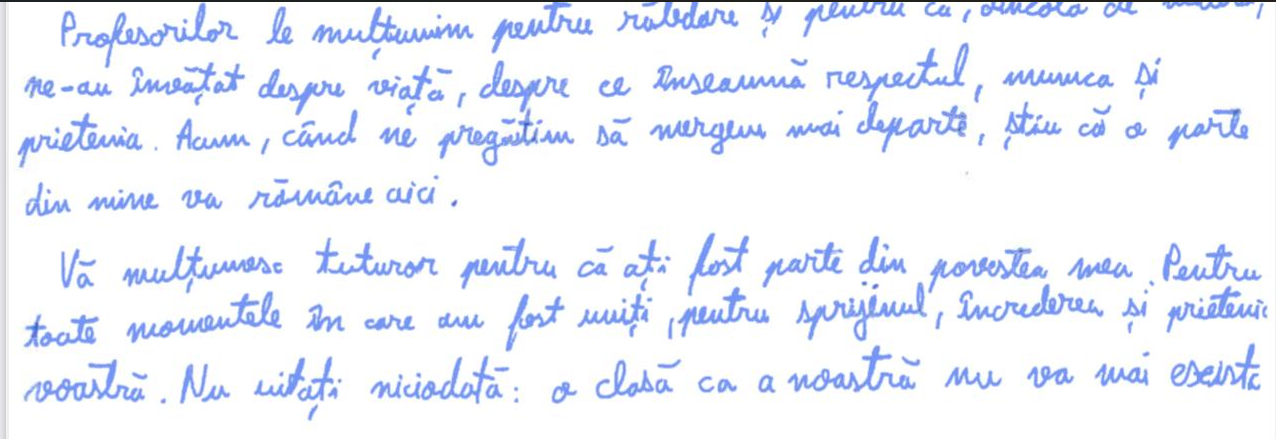 Profesorilor le mulțumim pentru răbdare și pentru că, dincolo de
ne-au învățat despre viață, despre ce înseamnă respectul, munca și
prietenia. Acum, când ne pregătim să mergem mai departe, știu că o parte
din mine va rămâne aici.
Vă mulțumesc tuturor pentru că ați fost parte din povestea mea. Pentru
toate momentele în care am fost uniți, pentru sprijinul, încrederea și prietenia
voastră. Nu uitați niciodată: o clasă ca a noastră nu va mai exista